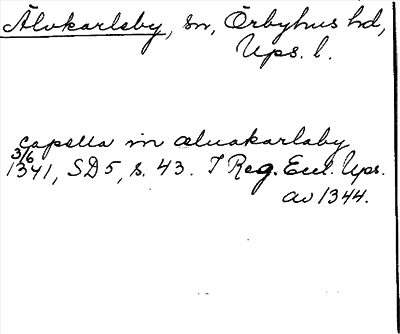 Älvkarleby, sn, Örbyhus hd,
Ups. l.
capella in aluakarlaby
3/6 1341, SD 5, s. 43. I Reg. Eccl. Ups.
av 1344.